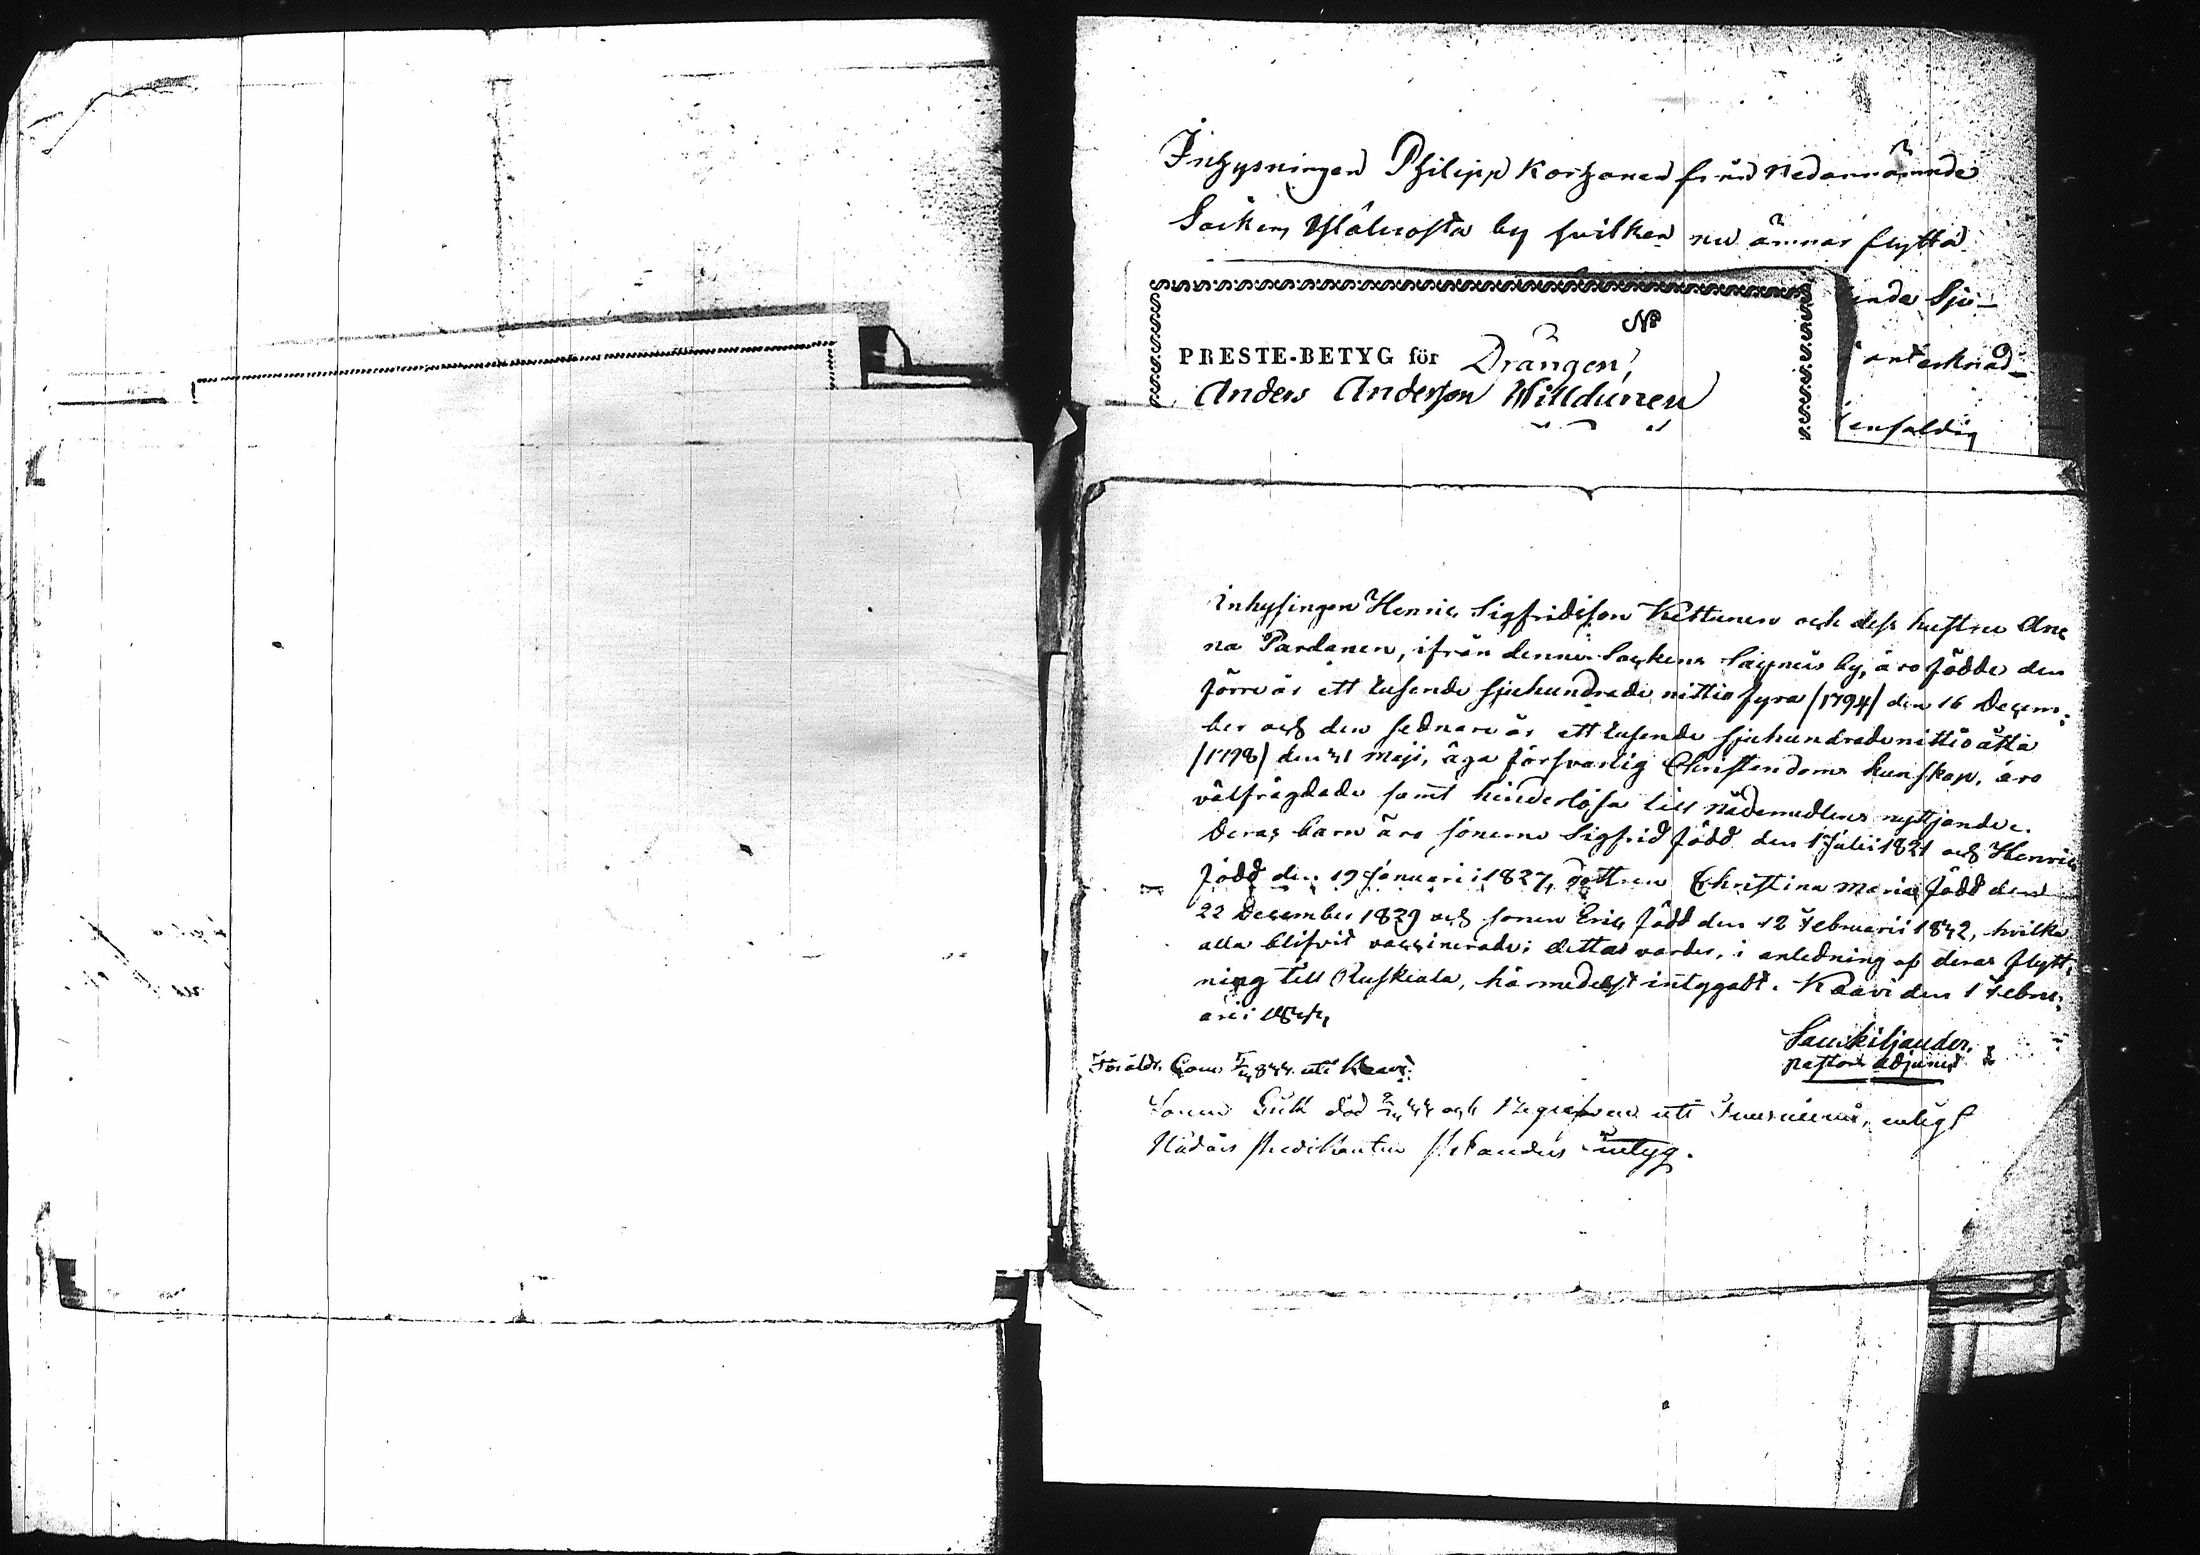 Inhysningen Philipp Korhonen från nedannämnde
Socken by hvilken nu ämnar flytta
ande Sju-
No
PRESTE-BETYG för Drängen,
Anders Andersson Willdunen
enfaldig
Inhysingen Henric Sigfridsson Kettunen och dess hustru An-
na Pardanen, ifrån denne Sockens by, äro födde den
förre år ett tusende sjuhundrade nittio fyra /1794/ den 16 Decem-
ber och den sednare år ett tusende sjuhundrade nittio åtta
/1798/ den 21 Maji, äga försvarlig Christendoms kunskap, äro
välfrägdade samt hinderlösa till nådemedlens nyttjande.
Deras barn äro sönerne Sigfrid född den 1 Julii 1821 och Henric
född den 19 Januarii 1827, dottren Christina Maria född den
22 December 1829 och sonen Eric född den 12 Februarii 1842, hvilka
alla blifvit vaccinerade; dettas varder, i anledning af deras flytt-
ning till Ruskeala, härmedelst intygadt. Kaavi den 1 Febru-
arii 1844,
pastors adjunct
Föräldr. Com. uti Kaavi.
Sonen död och begrafven uti enligt
intyg.